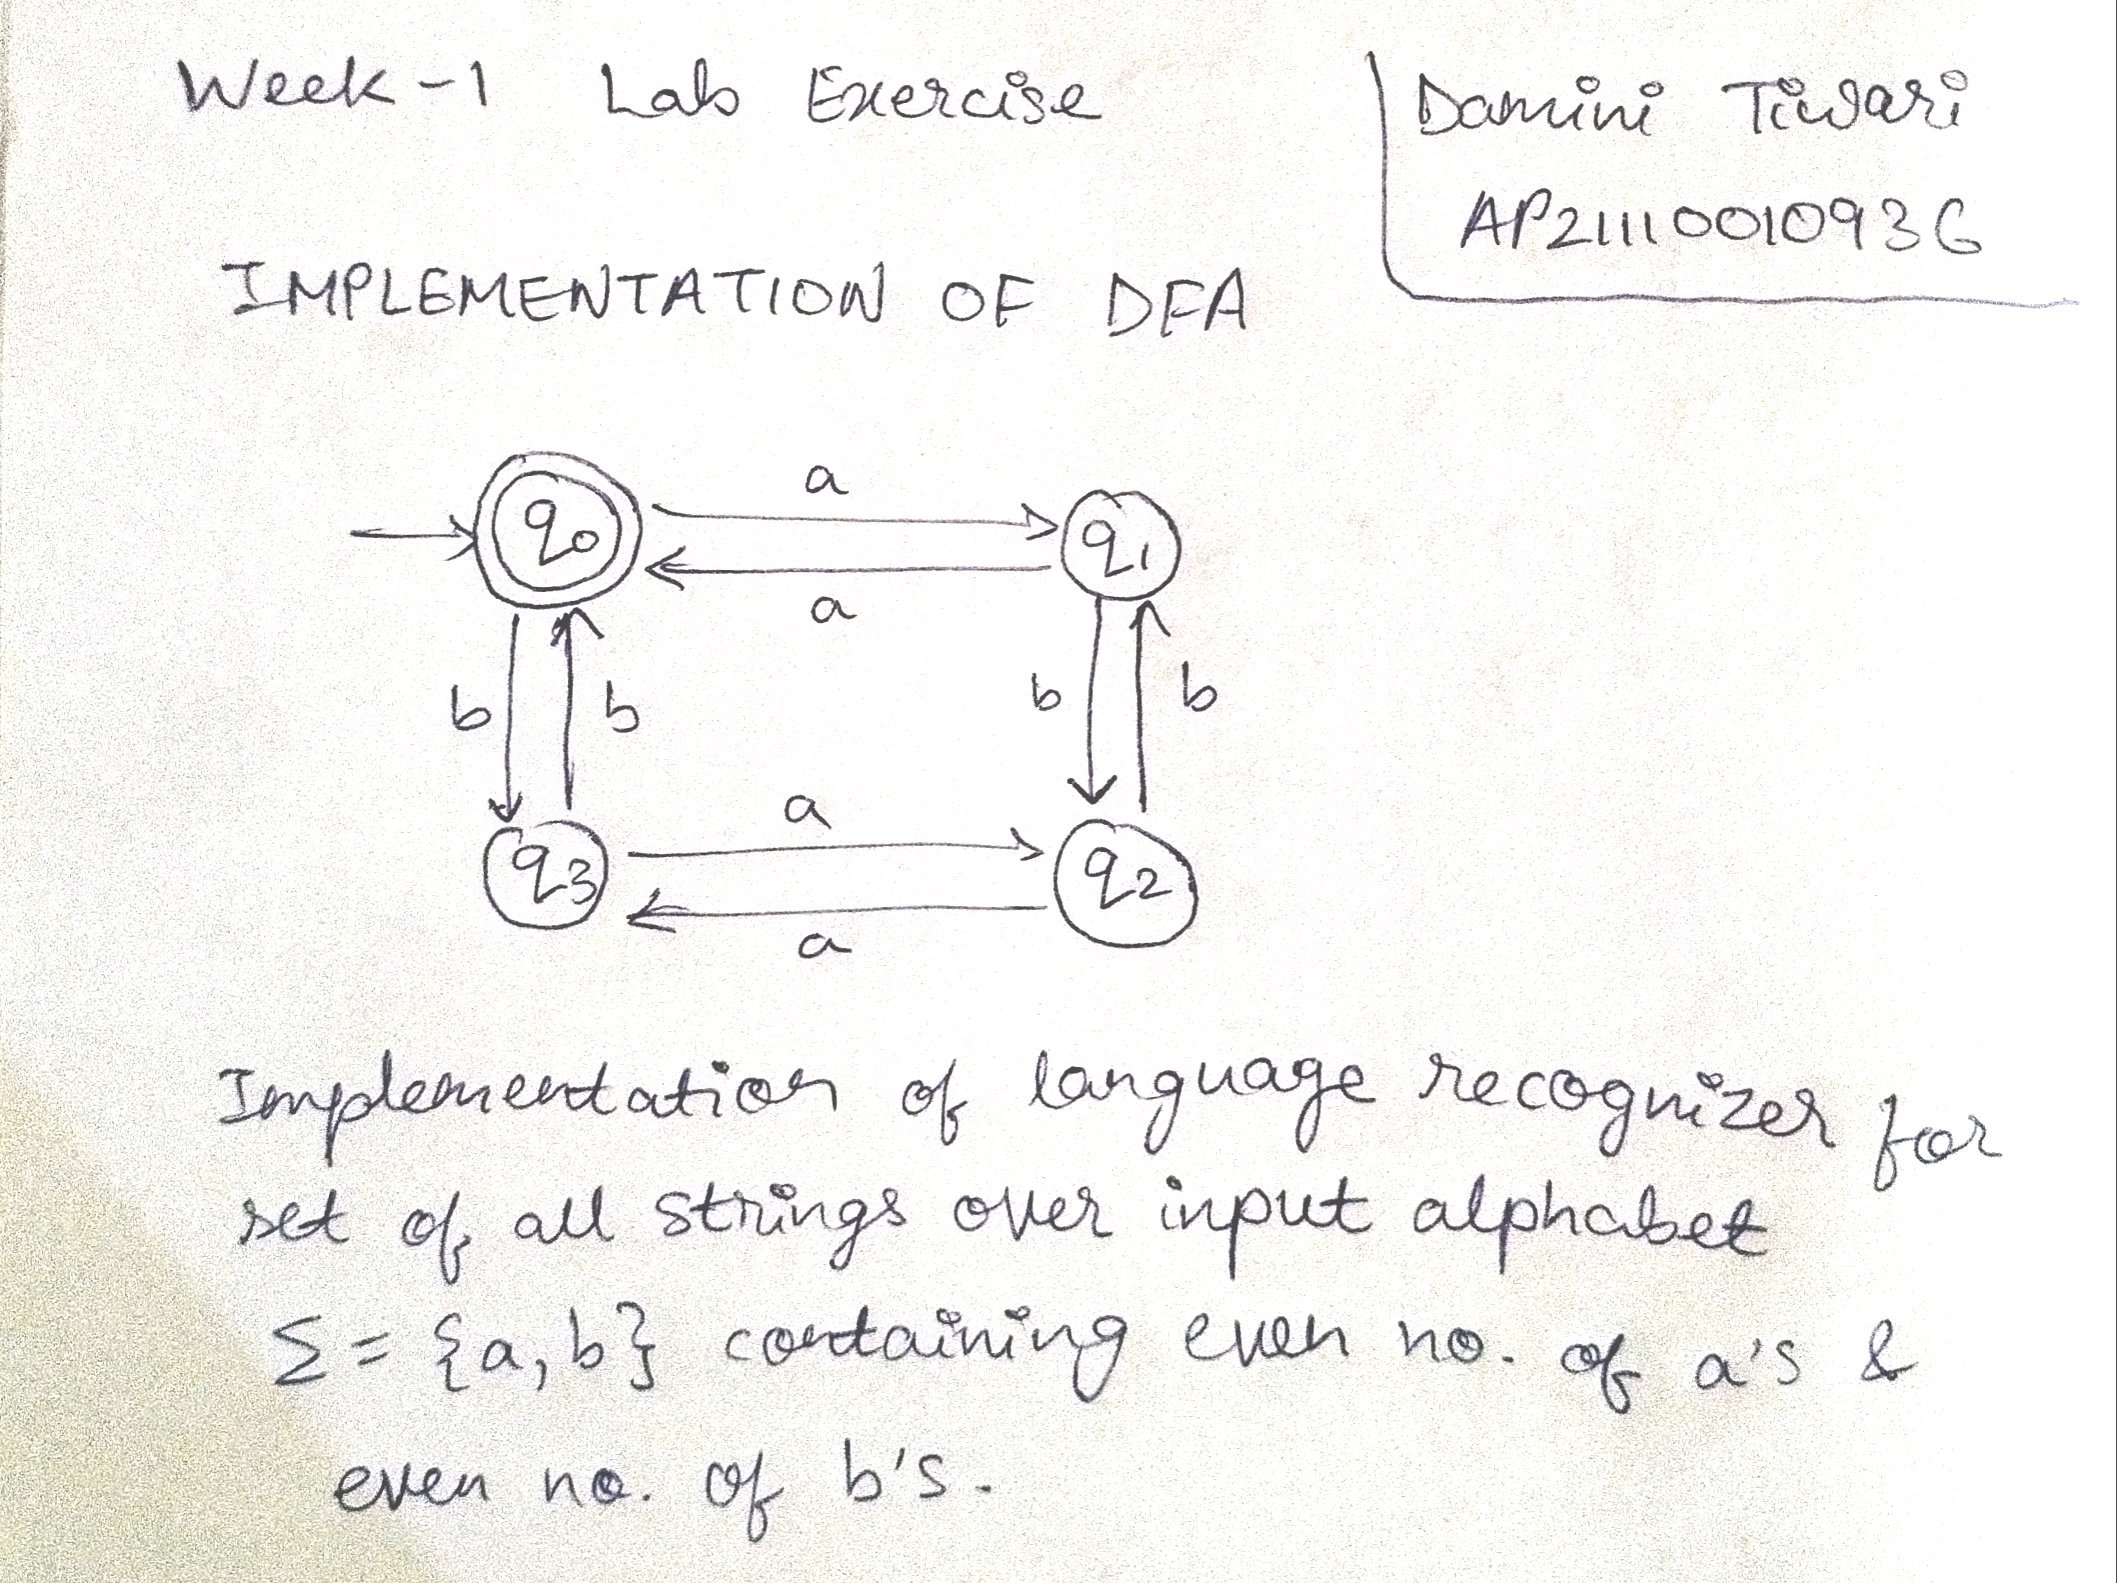 Week-1 Lab Exercise
Damini Tiwari
AP21110010936
IMPLEMENTATION OF DFA
a
q0 q1
a
b b b b
a
q3 q2
a
Implementation of language recognizer for
set of all strings over input alphabet
Σ = {a, b} containing even no. of a's &
even no. of b's.